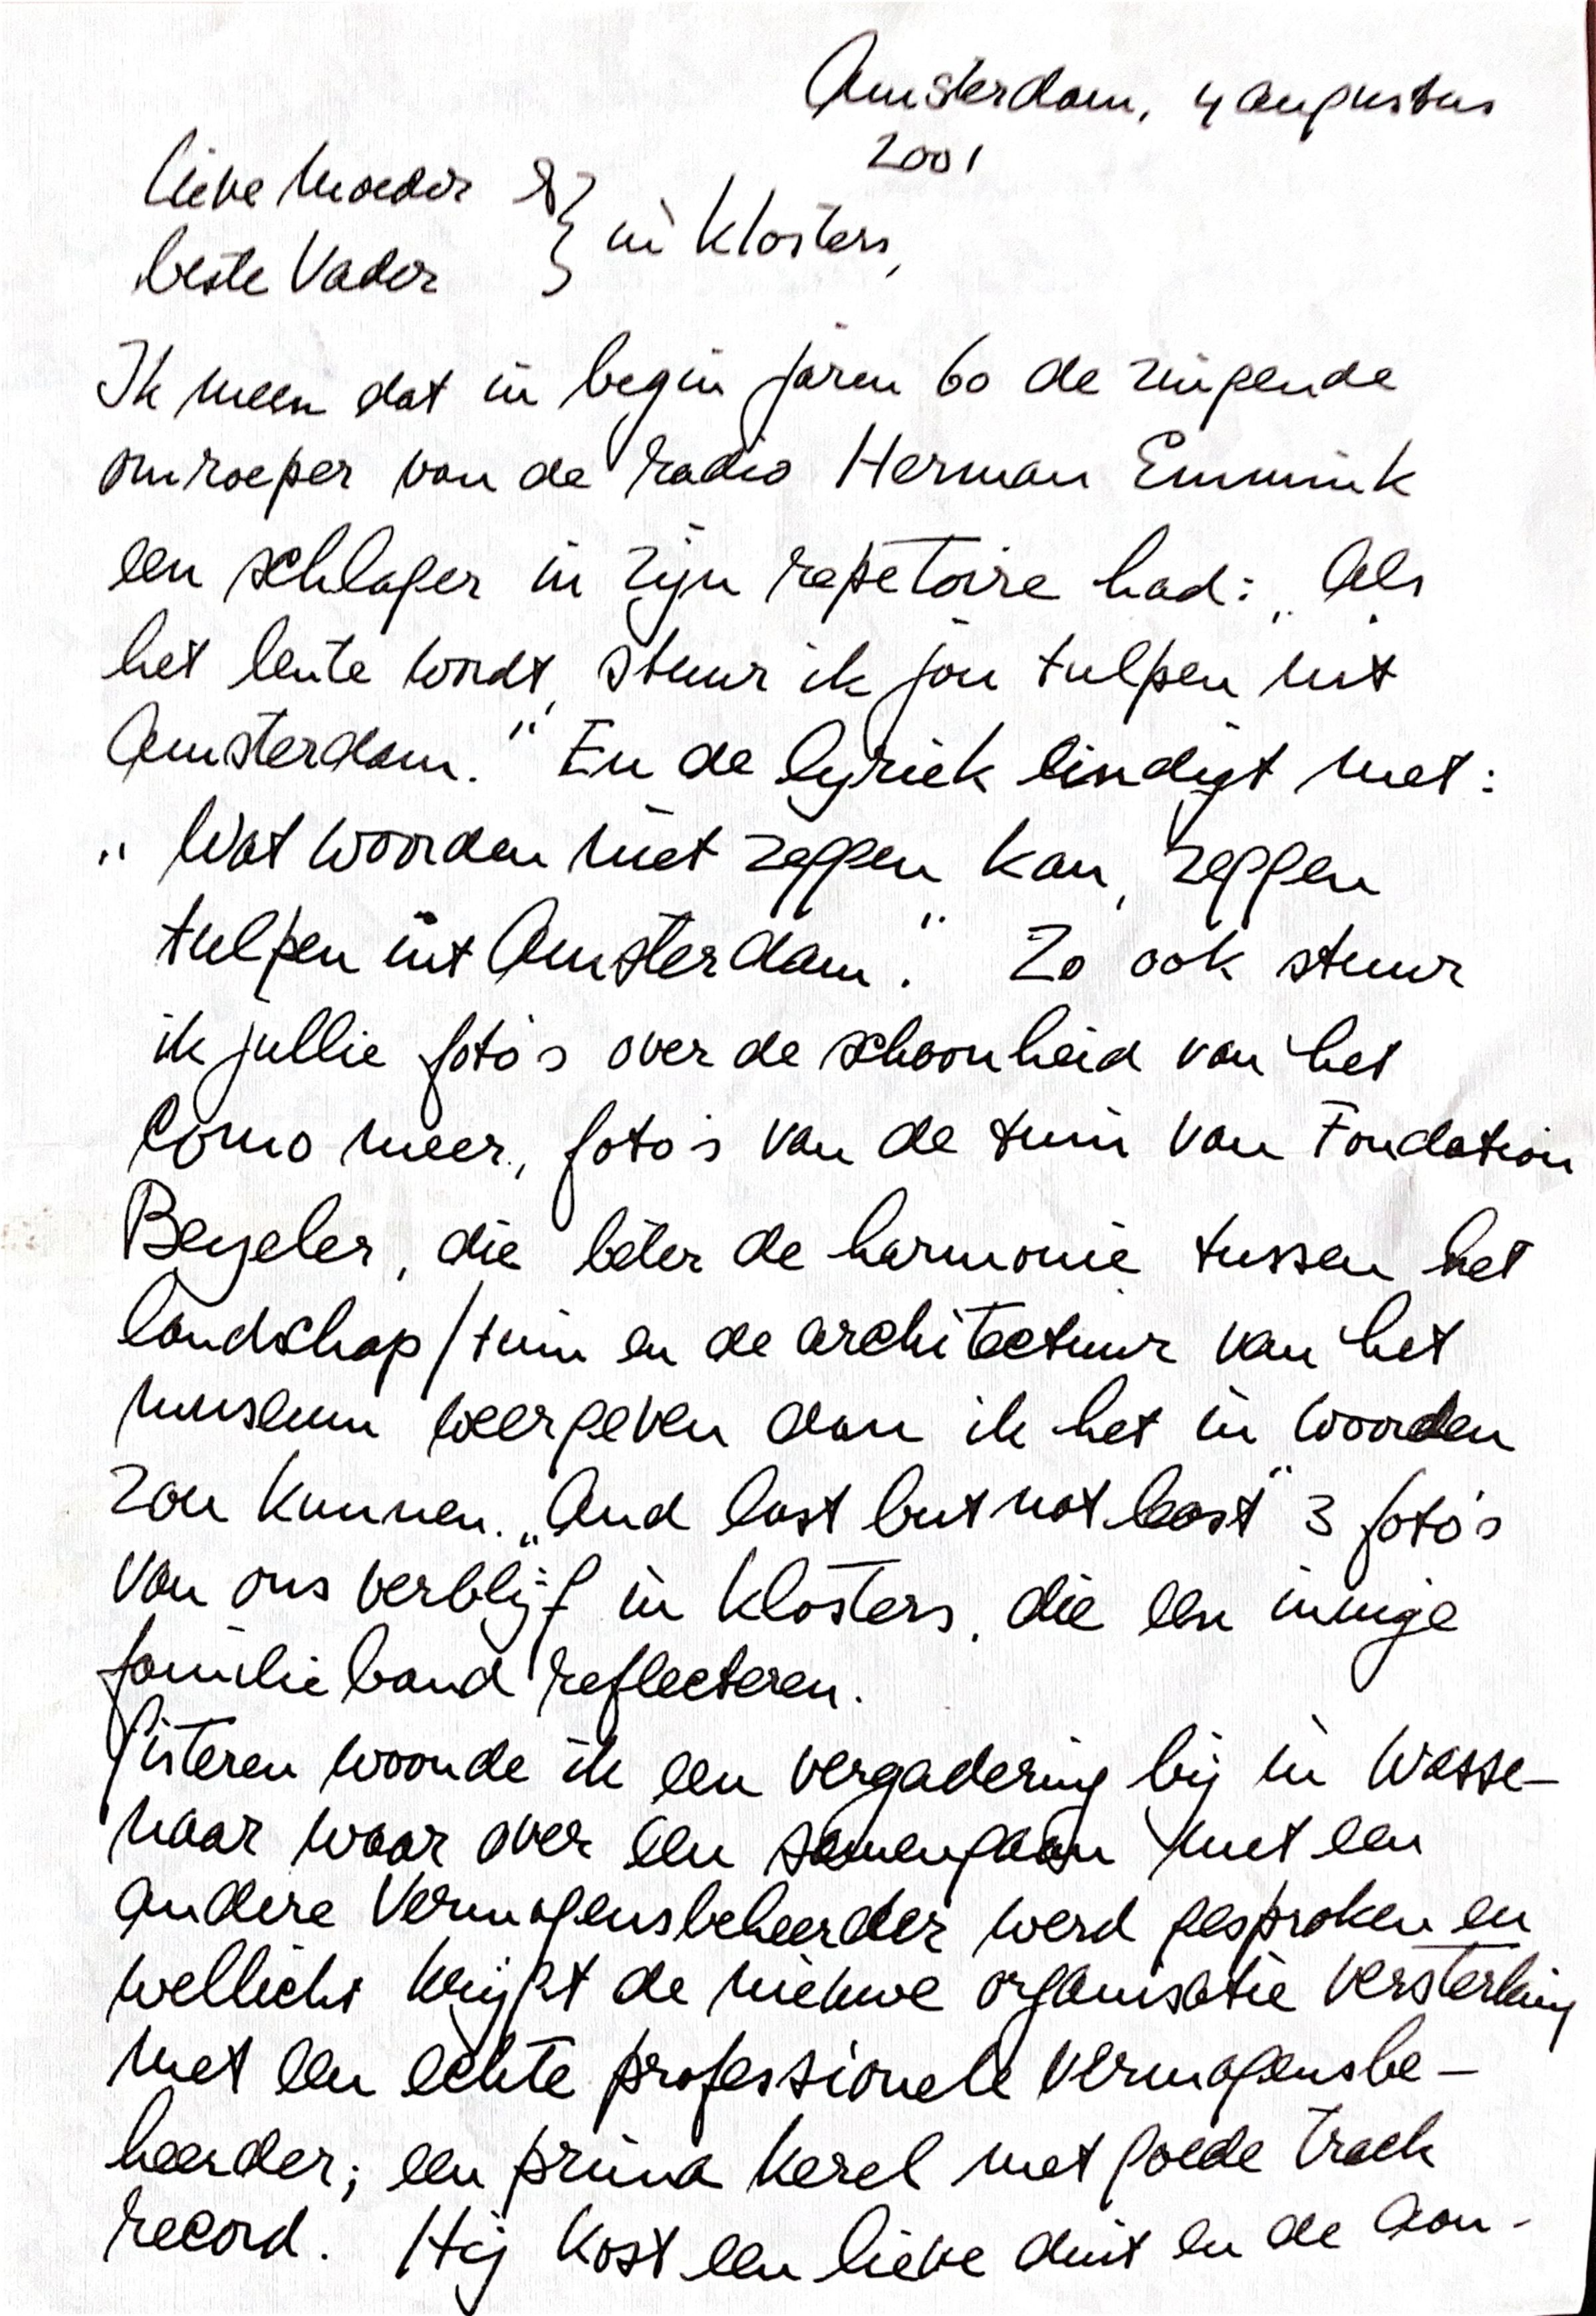 Amsterdam, 4 augustus
2001
lieve Moeder &
beste Vader } in Klosters,
Ik meen dat in begin jaren 60 de zingende
omroeper van de radio Herman Emmink
een schlager in zijn repetoire had: „Als
het lente wordt, stuur ik jou tulpen uit
Amsterdam." En de lyriek eindigt met:
„Wat woorden niet zeggen kan, zeggen
tulpen uit Amsterdam." Zo ook stuur
ik jullie foto's over de schoonheid van het
Como meer, foto's van de tuin van Fondation
Beyeler, die beter de harmonie tussen het
landschap/tuin en de architectuur van het
museum weergeven dan ik het in woorden
zou kunnen. „And last but not least" 3 foto's
van ons verblijf in Klosters, die een innige
familie band reflecteren.
Gisteren woonde ik een vergadering bij in Wasse-
naar waar over een samengaan met een
andere Vermogensbeheerder werd gesproken en
wellicht krijgt de nieuwe organisatie versterking
met een echte professionele vermogensbe-
heerder; een prima kerel met goede track
record. Hij kost een lieve duit en de aan-